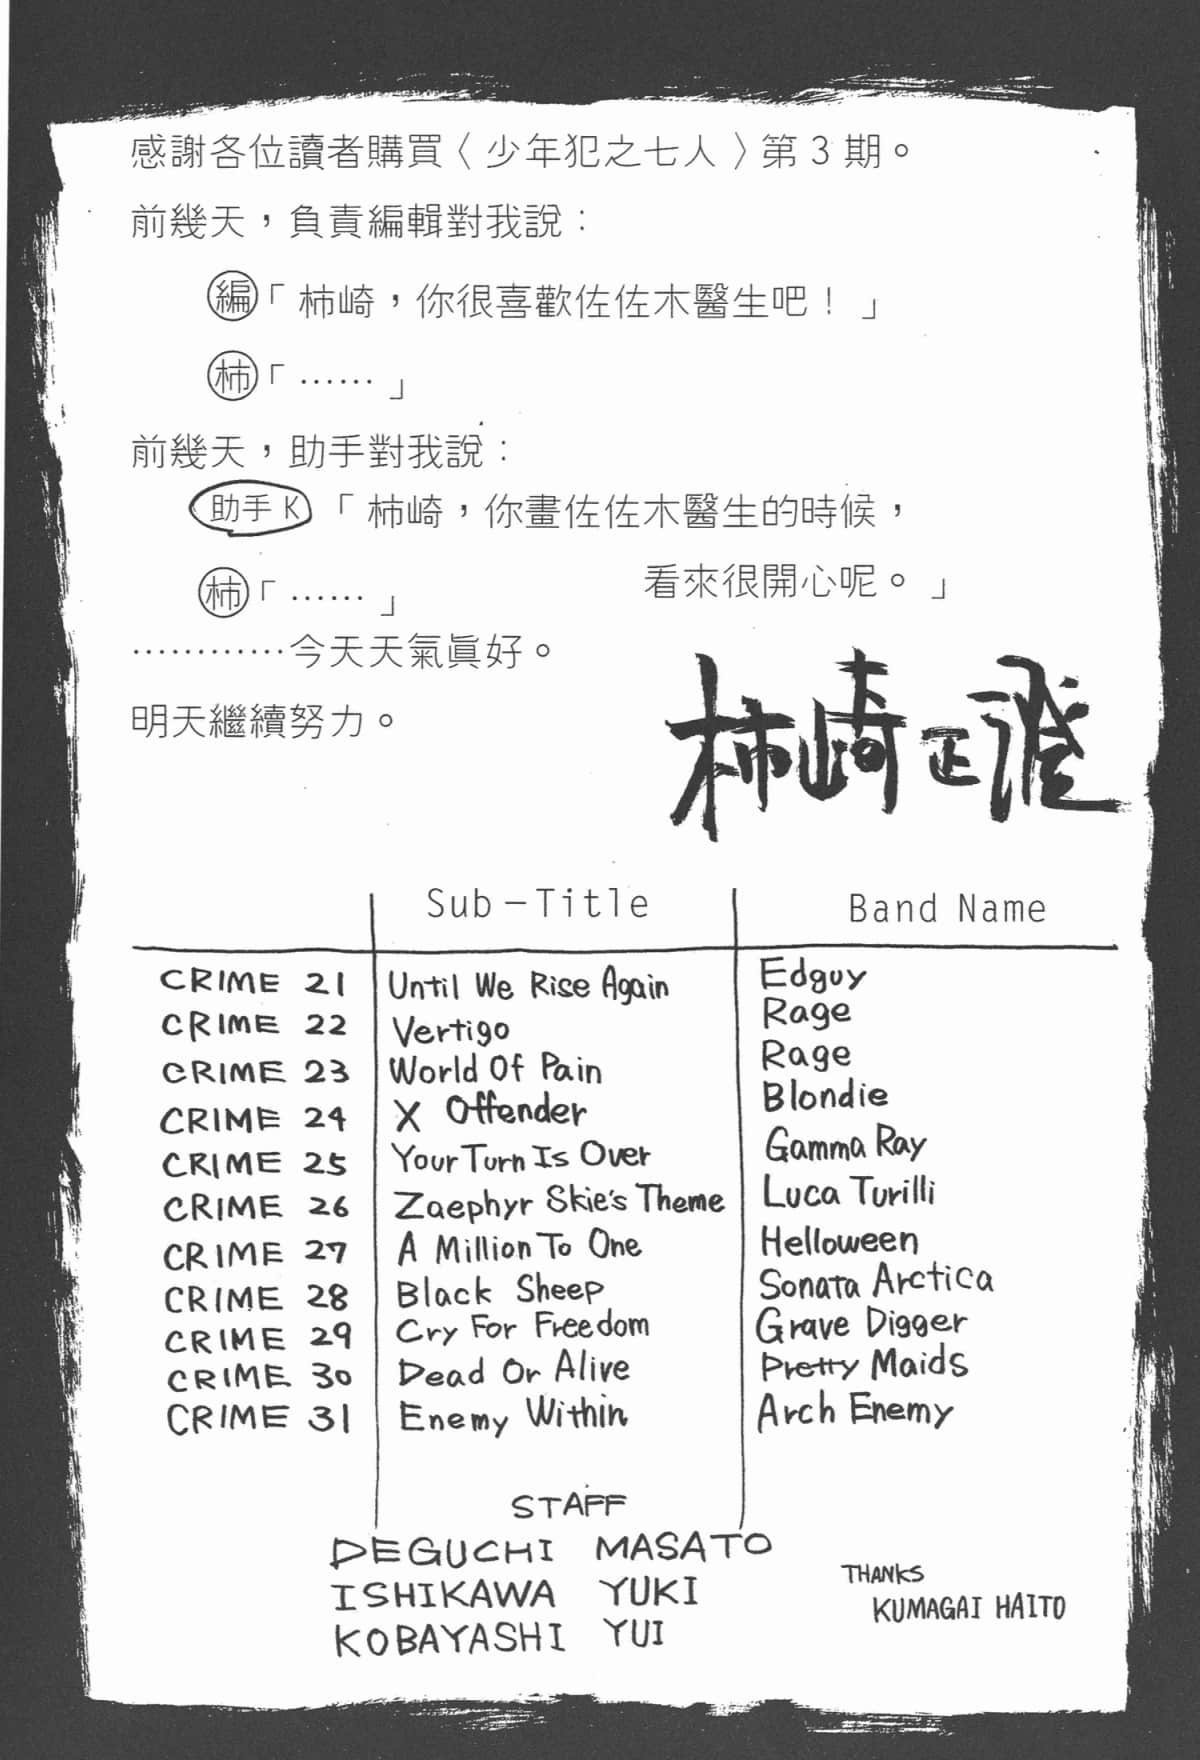 感謝各位讀者購買〈少年犯之七人〉第3期。
前幾天，負責編輯對我說：
編「柿崎，你很喜歡佐佐木醫生吧！」
柿「……」
前幾天，助手對我說：
助手K「柿崎，你畫佐佐木醫生的時候，
看來很開心呢。」
柿「……」
…………今天天氣眞好。
明天繼續努力。
柿崎正澄
Sub-Title Band Name
CRIME 21 Until We Rise Again Edguy
CRIME 22 Vertigo Rage
CRIME 23 World Of Pain Rage
CRIME 24 X Offender Blondie
CRIME 25 Your Turn Is Over Gamma Ray
CRIME 26 Zaephyr Skie's Theme Luca Turilli
CRIME 27 A Million To One Helloween
CRIME 28 Black Sheep Sonata Arctica
CRIME 29 Cry For Freedom Grave Digger
CRIME 30 Dead Or Alive Pretty Maids
CRIME 31 Enemy Within Arch Enemy
STAFF
DEGUCHI MASATO
ISHIKAWA YUKI
KOBAYASHI YUI
THANKS
KUMAGAI HAITO